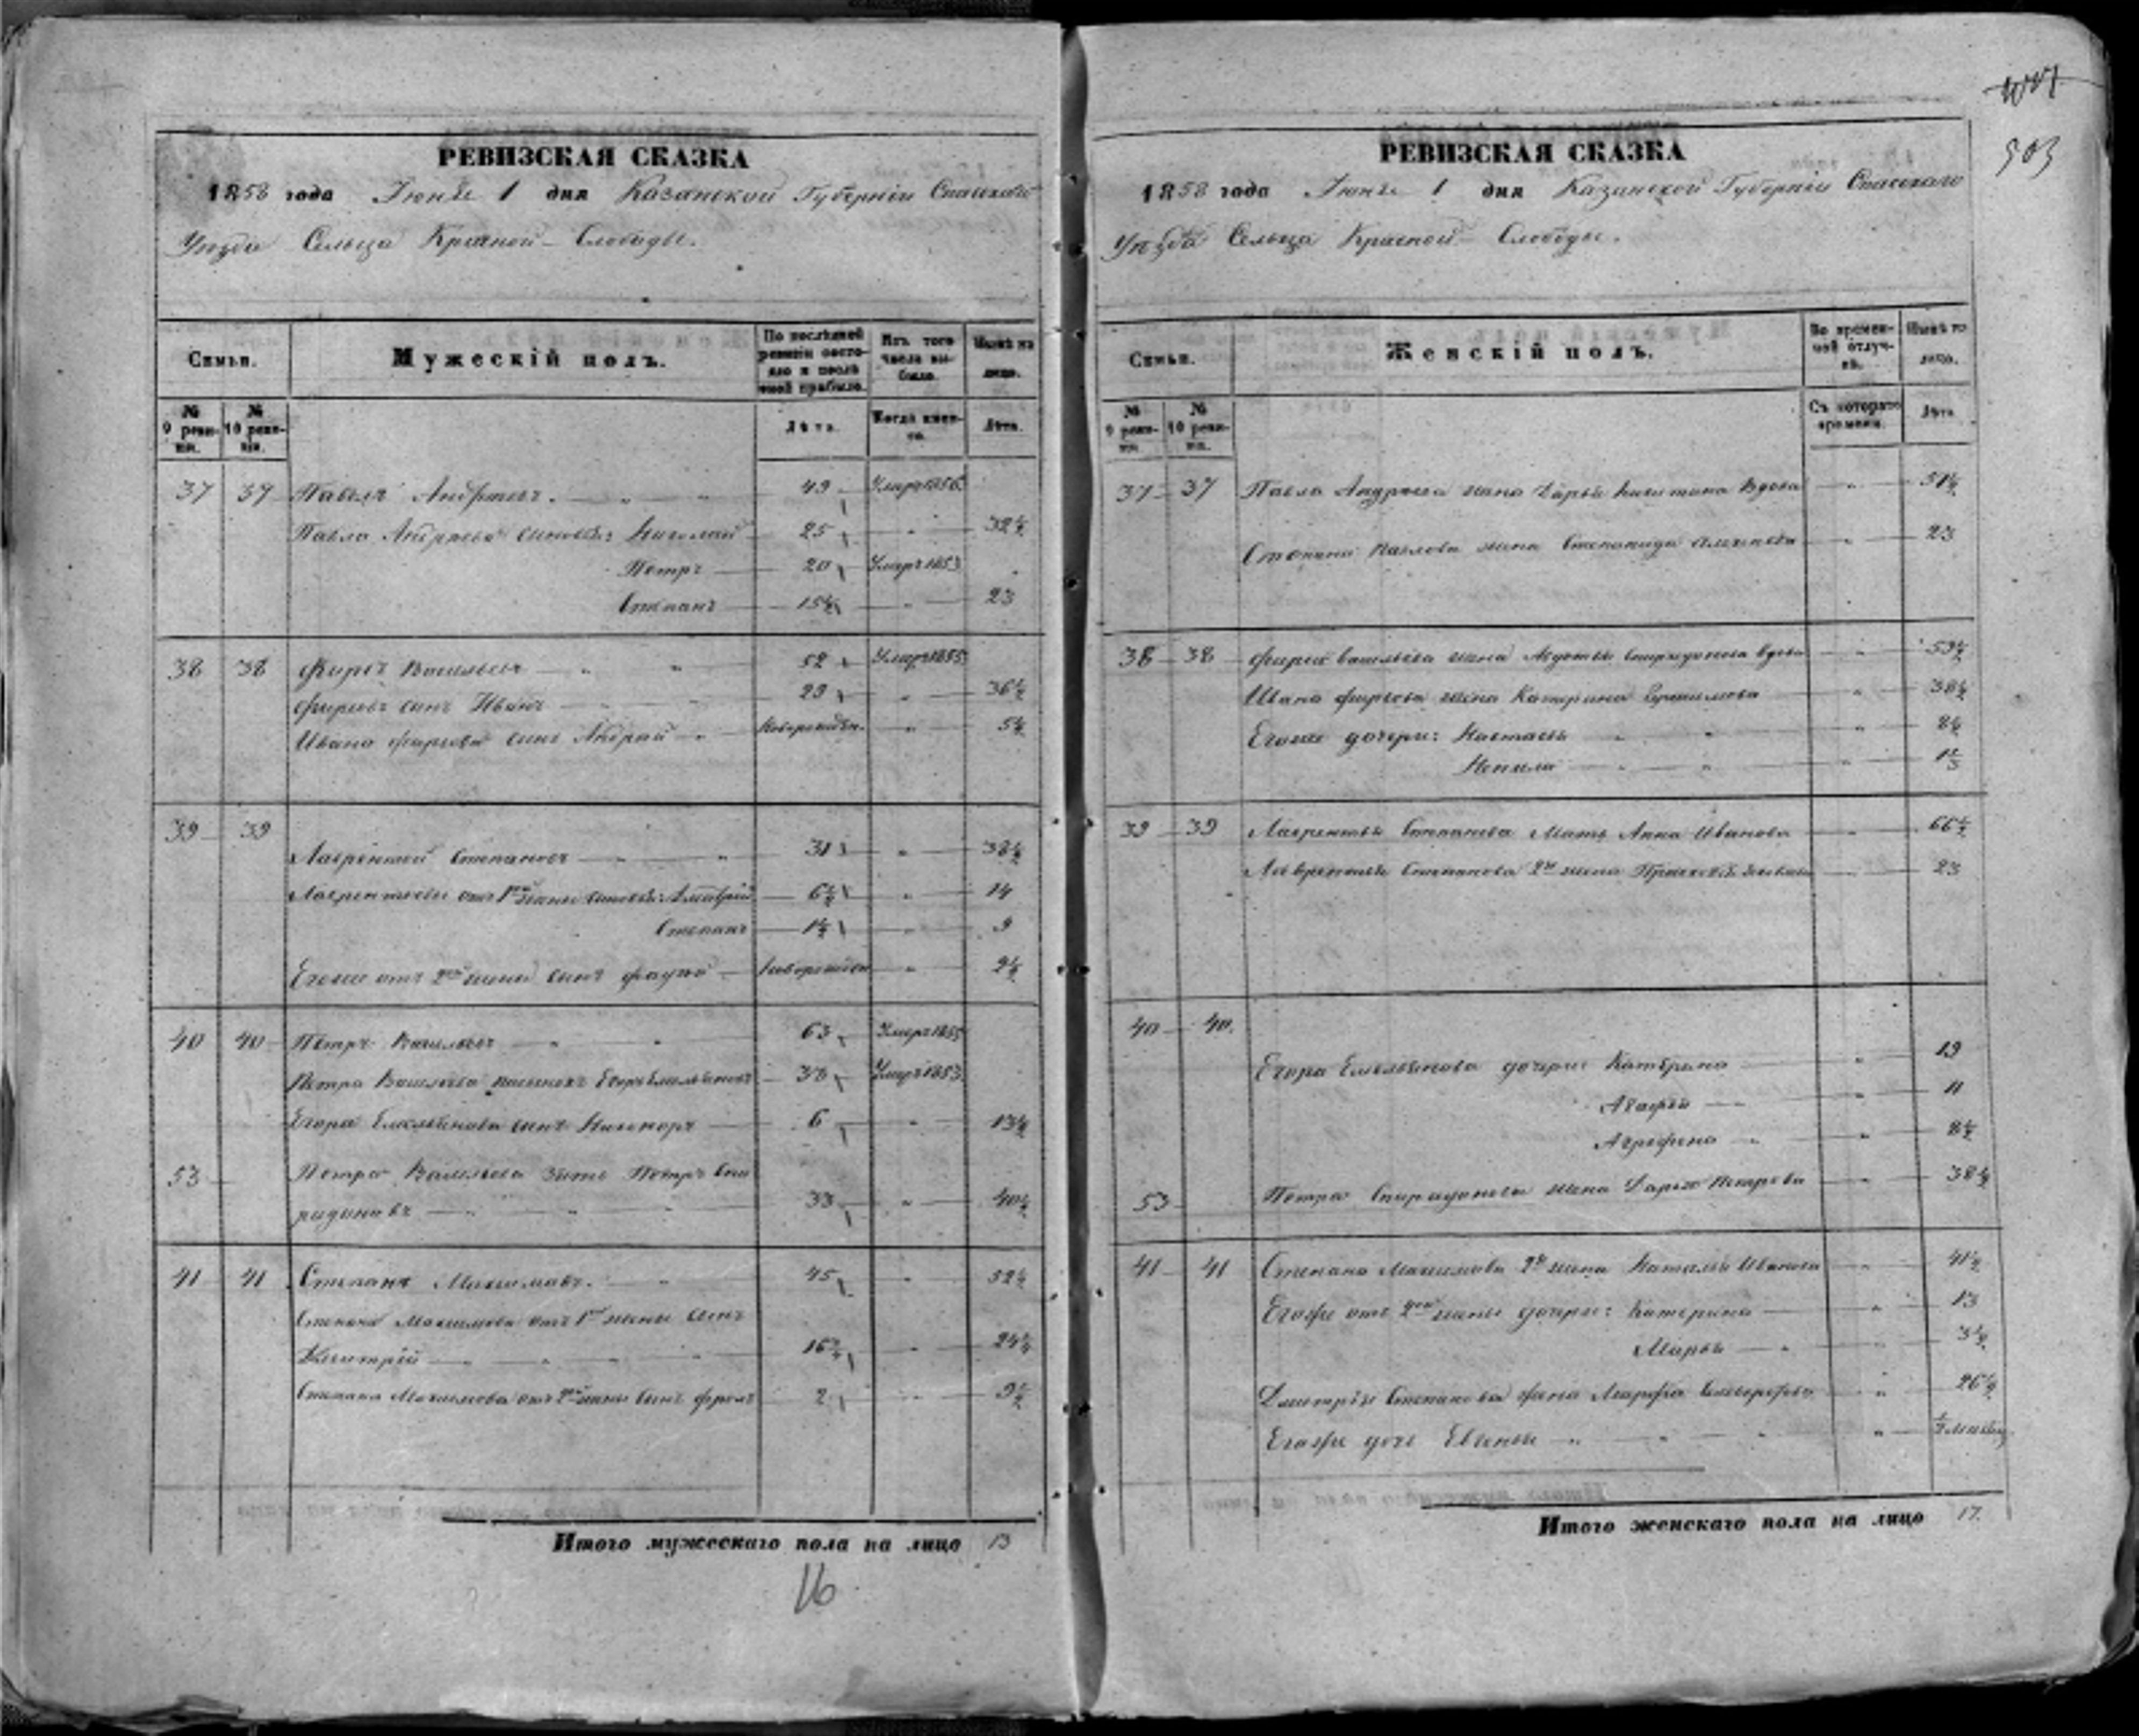 РЕВИЗСКАЯ СКАЗКА
1858 года Іюня 1 дня Казанской Губерніи Спасскаго
Уѣзда Сельца Красной-Слободы.
Семьи.
Мужескій полъ.
По послѣдней ревизіи состояло и послѣ оной прибыло.
Изъ того числа выбыло.
Нынѣ на лицо.
№ 9 ревизіи.
№ 10 ревизіи.
Лѣта.
Когда именно.
Лѣта.
37 37 Павелъ Андреевъ. 49 Умеръ 1856
Павла Андреева сыновья: Николай 25 " 32½
Петръ 20 Умеръ 1853
Степанъ 15½ " 23
38 38 Фирсъ Васильевъ 52 Умеръ 1855
Фирсовъ сынъ Иванъ 29 " 36½
Ивана Фирсова сынъ Андрей Новорожден. " 5½
39 39
Лаврентій Степановъ 31 " 38½
Лаврентьевы отъ 1ой жены сыновья: 6½ " 14
Степанъ 1½ " 9
Егоже отъ 2ой жены сынъ Новорожден " 2½
40 40 Петръ Васильевъ 63 Умеръ 1855
Петра Васильева пасынокъ Егоръ Емельяновъ 38 Умеръ 1853
Егора Емельянова сынъ Никоноръ 6 " 13½
53 Петра Васильева зять Петръ Спи
ридоновъ 33 " 40½
41 41 Степанъ Максимовъ. 45 " 52½
Степана Максимова отъ 1ой жены сынъ
Дмитрій 16¾ " 24¼
Степана Максимова отъ 2ой жены сынъ Фролъ 2 " 9½
Итого мужескаго пола на лицо 13
16
503
РЕВИЗСКАЯ СКАЗКА
1858 года Іюня 1 дня Казанской Губерніи Спасскаго
Уѣзда Сельца Красной-Слободы.
Семьи.
Женскій полъ.
Во временной отлучкѣ.
Нынѣ на лицо.
№ 9 ревизіи.
№ 10 ревизіи.
Съ котораго времени.
Лѣта
37 37 Павла Андреева жена Дарья Никитина вдова " 51½
Степана Павлова жена Степанида " 23
38 38 Фирса Васильева жена Авдотья Спиридонова вдова " 59½
Ивана Фирсова жена Катерина " 38½
Егоже дочери: Настасья " 8½
Ненила " 1⅔
39 39 Лаврентья Степанова Мать Анна Иванова " 66½
Лаврентья Степанова 2ая жена " 23
40 40.
Егора Емельянова дочери: Катерина " 19
Агафья " 11
Агрофена " 8½
53 Петра Спиридонова жена Дарья Петрова 38½
41 41 Степана Максимова 2я жена Наталья Иванова " 41½
Егоже отъ 2ой жены дочери: Катерина " 13
Марья " 3½
Дмитрія Степанова жена Марфа " 26½
Егоже дочь Евгенья "
Итого женскаго пола на лицо 17.